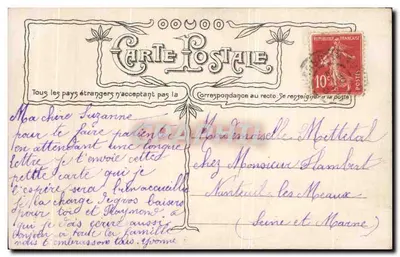 CARTE POSTALE
REPUBLIQUE FRANÇAISE
10c
POSTES
Tous les pays étrangers n'acceptant pas la Correspondance au recto. Se renseigner à la poste
Ma chère Suzanne
pour te faire
en attendant une longue
lettre je t'envoie cette
petite carte qui je
l'espère sera bien accueillie
je la charge de gros baisers
pour toi et Raymond à
qui je dois écrire aussi
Bonjour à toute la famille
vous embrassons tous. Yvonne
Mademoiselle Mettetal
chez Monsieur Flambert
Nanteuil-les-Meaux
(Seine et Marne)